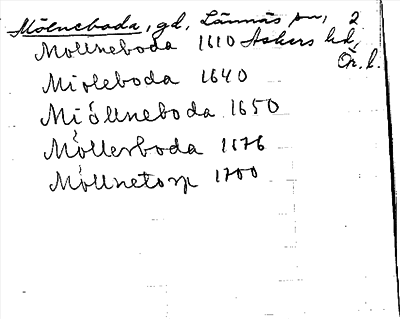 Mölneboda, gd, Lännäs sn, 2
Mollneboda 1610 Askers hd,
Ör. l.
Mioleboda 1640
Miöllneboda 1650
Möllerboda 1676
Möllnetorp 1700